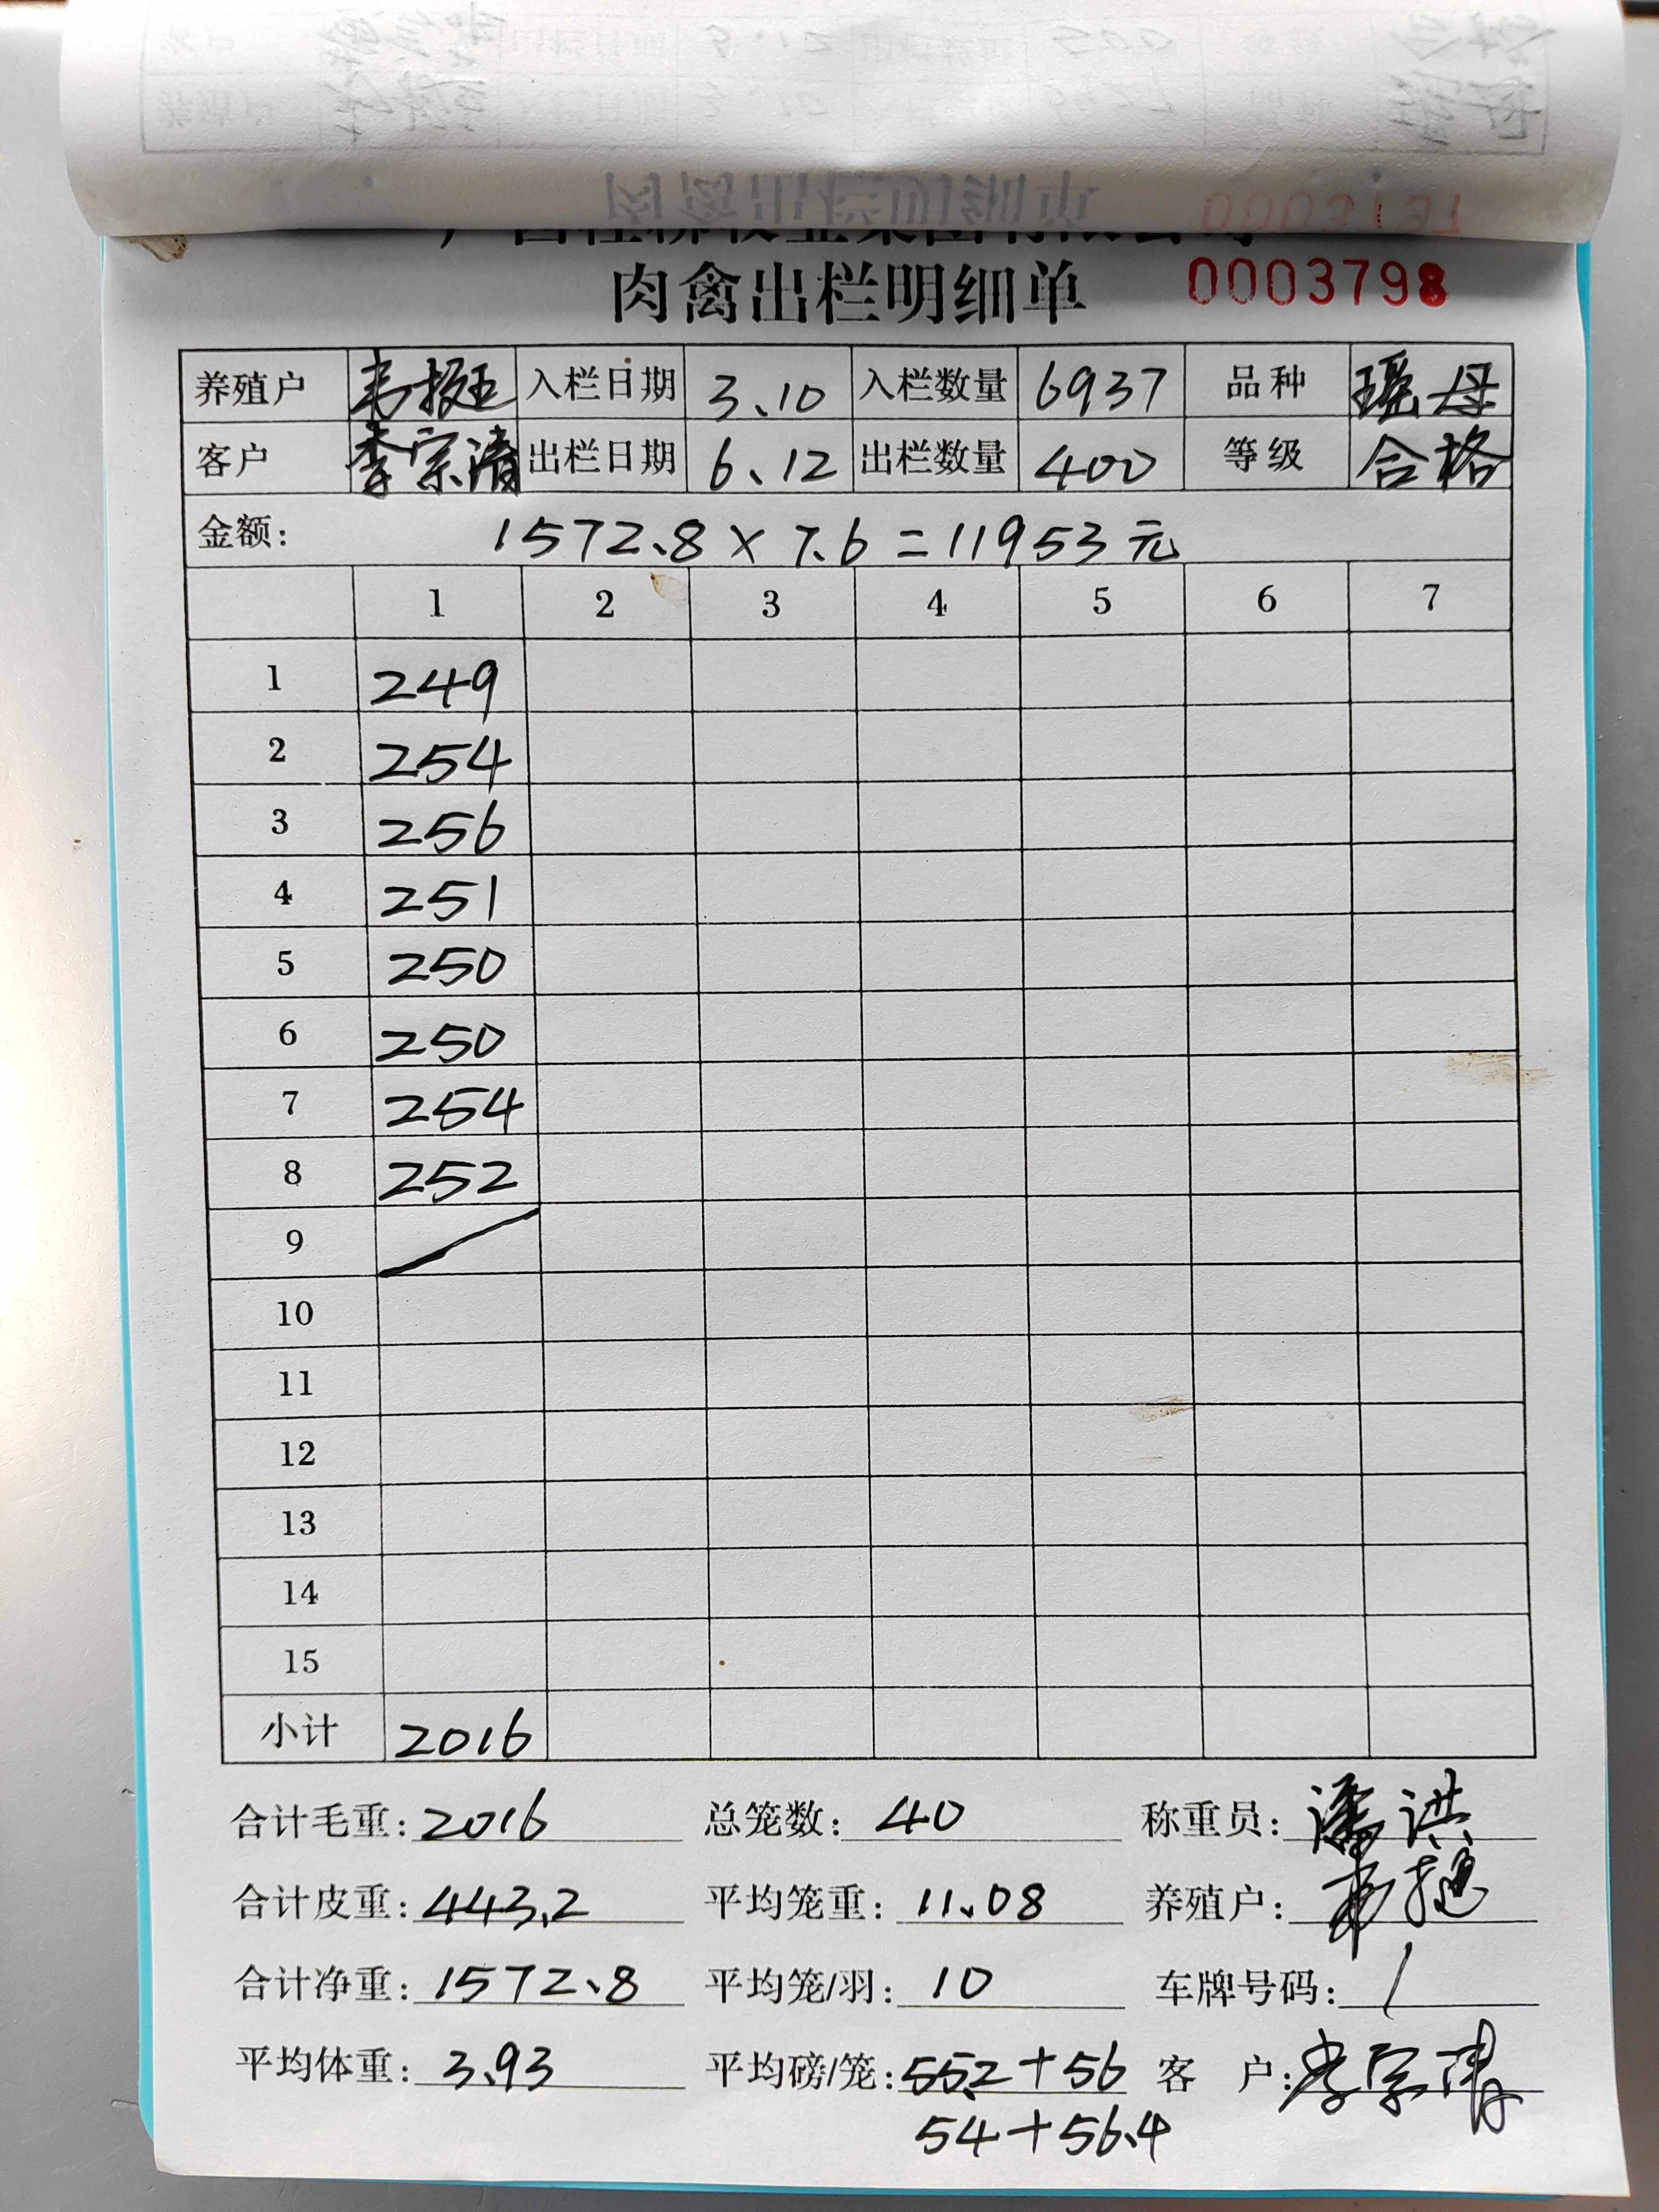 肉禽出栏明细单 0003798
养殖户 韦挺玉 入栏日期 3.10 入栏数量 6937 品种 瑶母
客户 李宗清 出栏日期 6.12 出栏数量 400 等级 合格
金额: 1572.8 × 7.6 = 11953元
1 2 3 4 5 6 7
1 249
2 254
3 256
4 251
5 250
6 250
7 254
8 252
9
10
11
12
13
14
15
小计 2016
合计毛重: 2016 总笼数: 40 称重员: 潘洪
合计皮重: 443.2 平均笼重: 11.08 养殖户:
合计净重: 1572.8 平均笼/羽: 10 车牌号码: /
平均体重: 3.93 平均磅/笼: 55.2+56 客 户: 李宗清
54+56.4